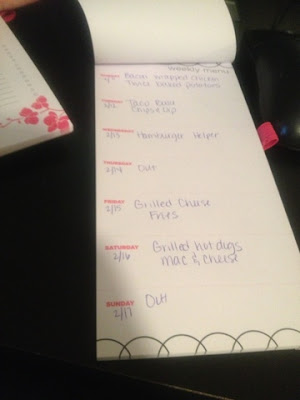 weekly menu
MONDAY
2/11
Bacon wrapped chicken
Twice baked potatoes
TUESDAY
2/12
Taco Bake
Chips & Dip
WEDNESDAY
2/13
Hamburger Helper
THURSDAY
2/14
Out
FRIDAY
2/15
Grilled Cheese
Fries
SATURDAY
2/16
Grilled hot dogs
mac & cheese
SUNDAY
2/17
Out